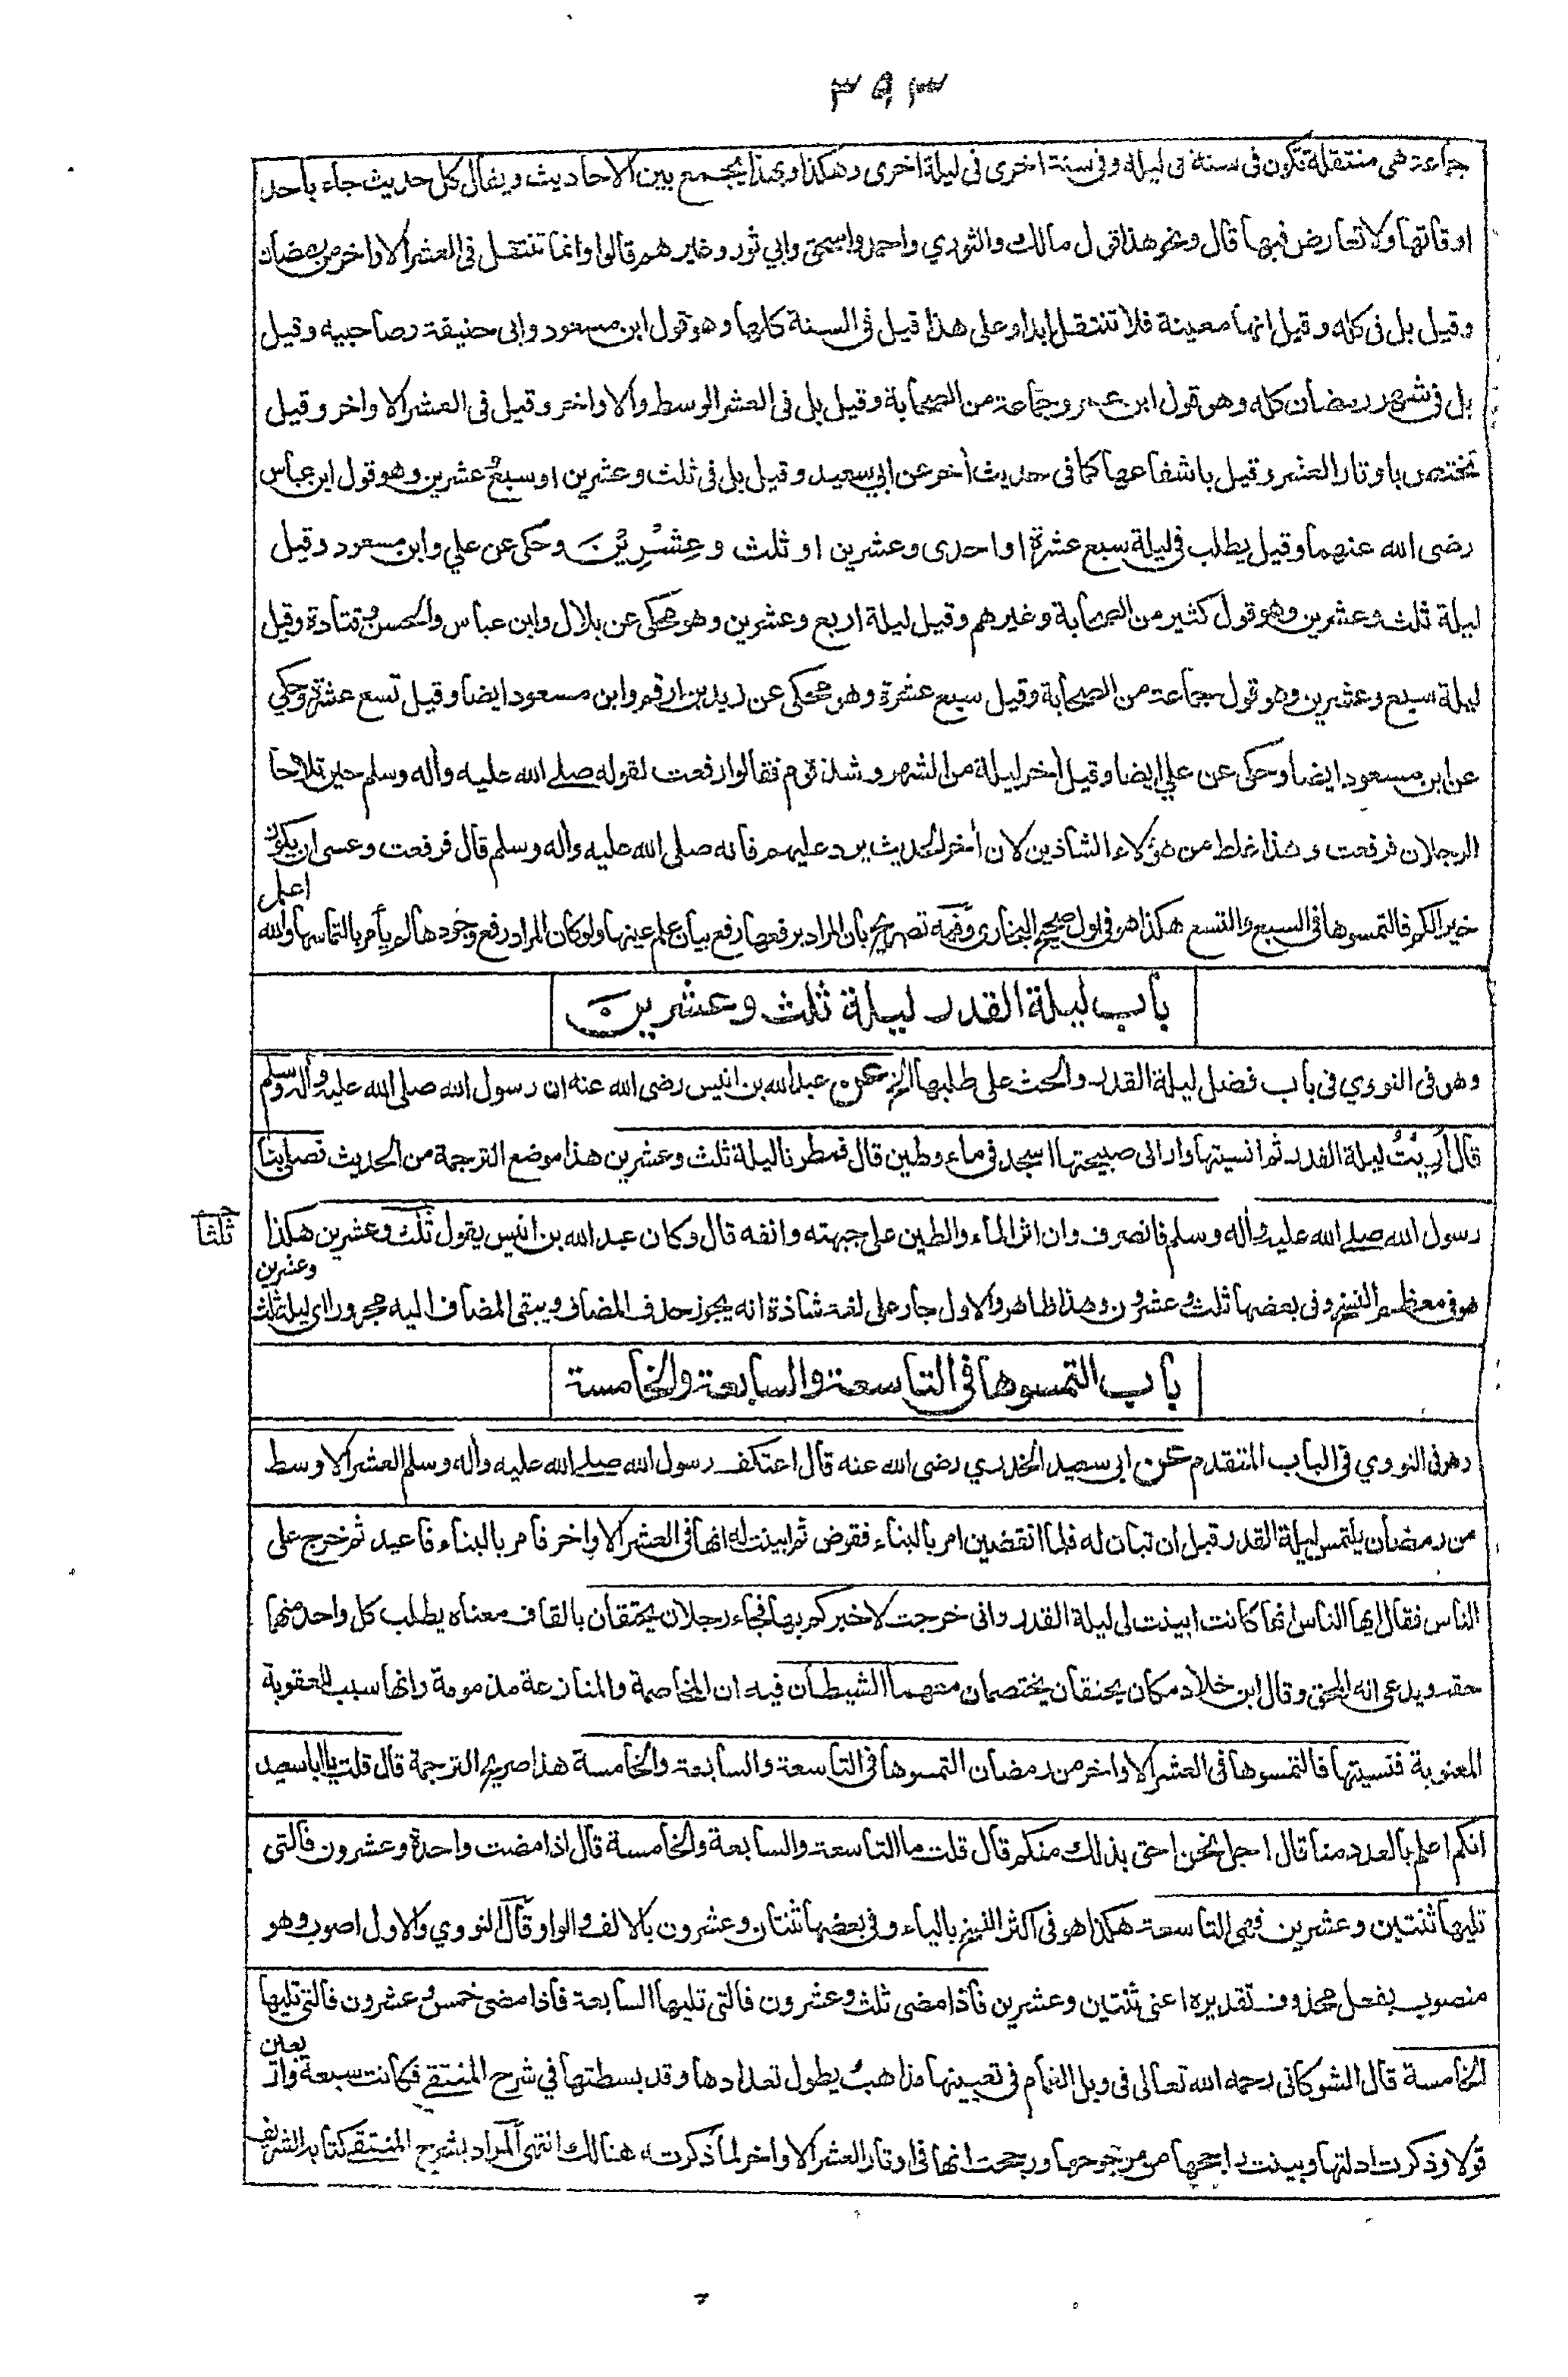 ٣٩٣
جماعة هى منتقلة تكون فى سنة فى ليلة وفى سنة اخرى فى ليلة اخرى وهكذا وبهذا يجمع بين الاحاديث ويقال كل حديث جاء باحد
اوقاتها ولا تعارض فيها قال ونحو هذا قول مالك والثوري واحمد واسحق وابي ثور وغيرهم قالوا وانما تنتقل فى العشر الاواخر من رمضان
وقيل بل فى كله وقيل انها معينة فلا تنتقل ابدا وعلى هذا قيل فى السنة كلها وهو قول ابن مسعود وابى حنيفة وصاحبيه وقيل
بل فى شهر رمضان كله وهو قول ابن عمر وجماعة من الصحابة وقيل بل فى العشر الوسط والاواخر وقيل فى العشر الاواخر وقيل
تختص باوتار العشر وقيل باشفاعها كما فى حديث أخر عن ابي سعيد وقيل بل فى ثلث وعشرين او سبع وعشرين وهو قول ابن عباس
رضى الله عنهما وقيل يطلب فى ليلة سبع عشرة او احدى وعشرين او ثلث وعِشْرِيْنَ وحكى عن علي وابن مسعود وقيل
ليلة ثلث وعشرين وهو قول كثير من الصحابة وغيرهم وقيل ليلة اربع وعشرين وهو محكى عن بلال وابن عباس والحسن وقتادة وقيل
ليلة سبع وعشرين وهو قول جماعة من الصحابة وقيل سبع عشرة وهو محكى عن زيد بن ارقم وابن مسعود ايضا وقيل تسع عشرة وحكي
عن ابن مسعود ايضا وحكى عن علي ايضا وقيل أخر ليلة من الشهر وشذ قوم فقالوا رفعت لقوله صلى الله عليه وأله وسلم حين تلاحا
الرجلان فرفعت وهذا غلط من هؤلاء الشاذين لان أخر الحديث يرد عليهم فانه صلى الله عليه وأله وسلم قال فرفعت وعسى ان يكون
خيرا لكم فالتمسوها فى السبع والتسع هكذا هو فى اول صحيح البخارى وفيه تصريح بان المراد برفعها رفع بيان علم عينها ولو كان المراد رفع وجودها لم يأمر بالتماسها والله اعلم
باب ليلة القدر ليلة ثلث وعشرين
وهو فى النووي فى باب فضل ليلة القدر والحث على طلبها الخ عن عبدالله بن انيس رضى الله عنه ان رسول الله صلى الله عليه وأله وسلم
قال أُرِيْتُ ليلة القدر ثم انسيتها وارانى صبيحتها اسجد فى ماء وطين قال فمطرنا ليلة ثلث وعشرين هذا موضع الترجمة من الحديث فصلى بنا
رسول الله صلى الله عليه وأله وسلم فانصرف وان اثر الماء والطين على جبهته وانفه قال وكان عبد الله بن انيس يقول ثلث وعشرين هكذا
ثلثا
هو فى معظم النسخ وفى بعضها ثلث وعشرون وهذا ظاهر والاول جار على لغة شاذة انه يجوز حذف المضاف ويبقى المضاف اليه مجرورا اى ليلة ثلث وعشرين
باب التمسوها فى التاسعة والسابعة والخامسة
وهو فى النووي فى الباب المتقدم عن ابى سعيد الخدري رضى الله عنه قال اعتكف رسول الله صلى الله عليه وأله وسلم العشر الاوسط
من رمضان يلتمس ليلة القدر قبل ان تبان له فلما انقضين امر بالبناء فقوض ثم ابينت له انها فى العشر الاواخر فامر بالبناء فاعيد ثم خرج على
الناس فقال ايها الناس انها كانت ابينت لى ليلة القدر وانى خرجت لاخبركم بها فجاء رجلان يحتقان بالقاف معناه يطلب كل واحد منهما
حقه ويدعى انه المحق وقال ابن خلاد مكان يحتقان يختصمان معهما الشيطان فيه ان المخاصمة والمنازعة مذمومة وانها سبب للعقوبة
المعنوية فنسيتها فالتمسوها فى العشر الاواخر من رمضان التمسوها فى التاسعة والسابعة والخامسة هذا صريح الترجمة قال قلت يا ابا سعيد
انكم اعلم بالعدد منا قال اجل نحن احق بذلك منكم قال قلت ما التاسعة والسابعة والخامسة قال اذا مضت واحدة وعشرون فالتى
تليها ثنتين وعشرين فهى التاسعة هكذا هو فى اكثر النسخ بالياء وفى بعضها ثنتان وعشرون بالالف والواو قال النووي والاول اصوب وهو
منصوب بفعل محذوف تقديره اعنى ثنتين وعشرين فاذا مضى ثلث وعشرون فالتى تليها السابعة فاذا مضى خمس وعشرون فالتى تليها
الخامسة قال الشوكانى رحمه الله تعالى فى وبل الغمام فى تعيينها مذاهب يطول تعدادها وقد بسطتها في شرح المنتقى فكانت سبعة واربعين
قولا وذكرت ادلتها وبينت راجحها من مرجوحها ورجحت انها فى اوتار العشر الاواخر لما ذكرته هنالك انتهى المراد بشرح المنتقى كتابه الشريف